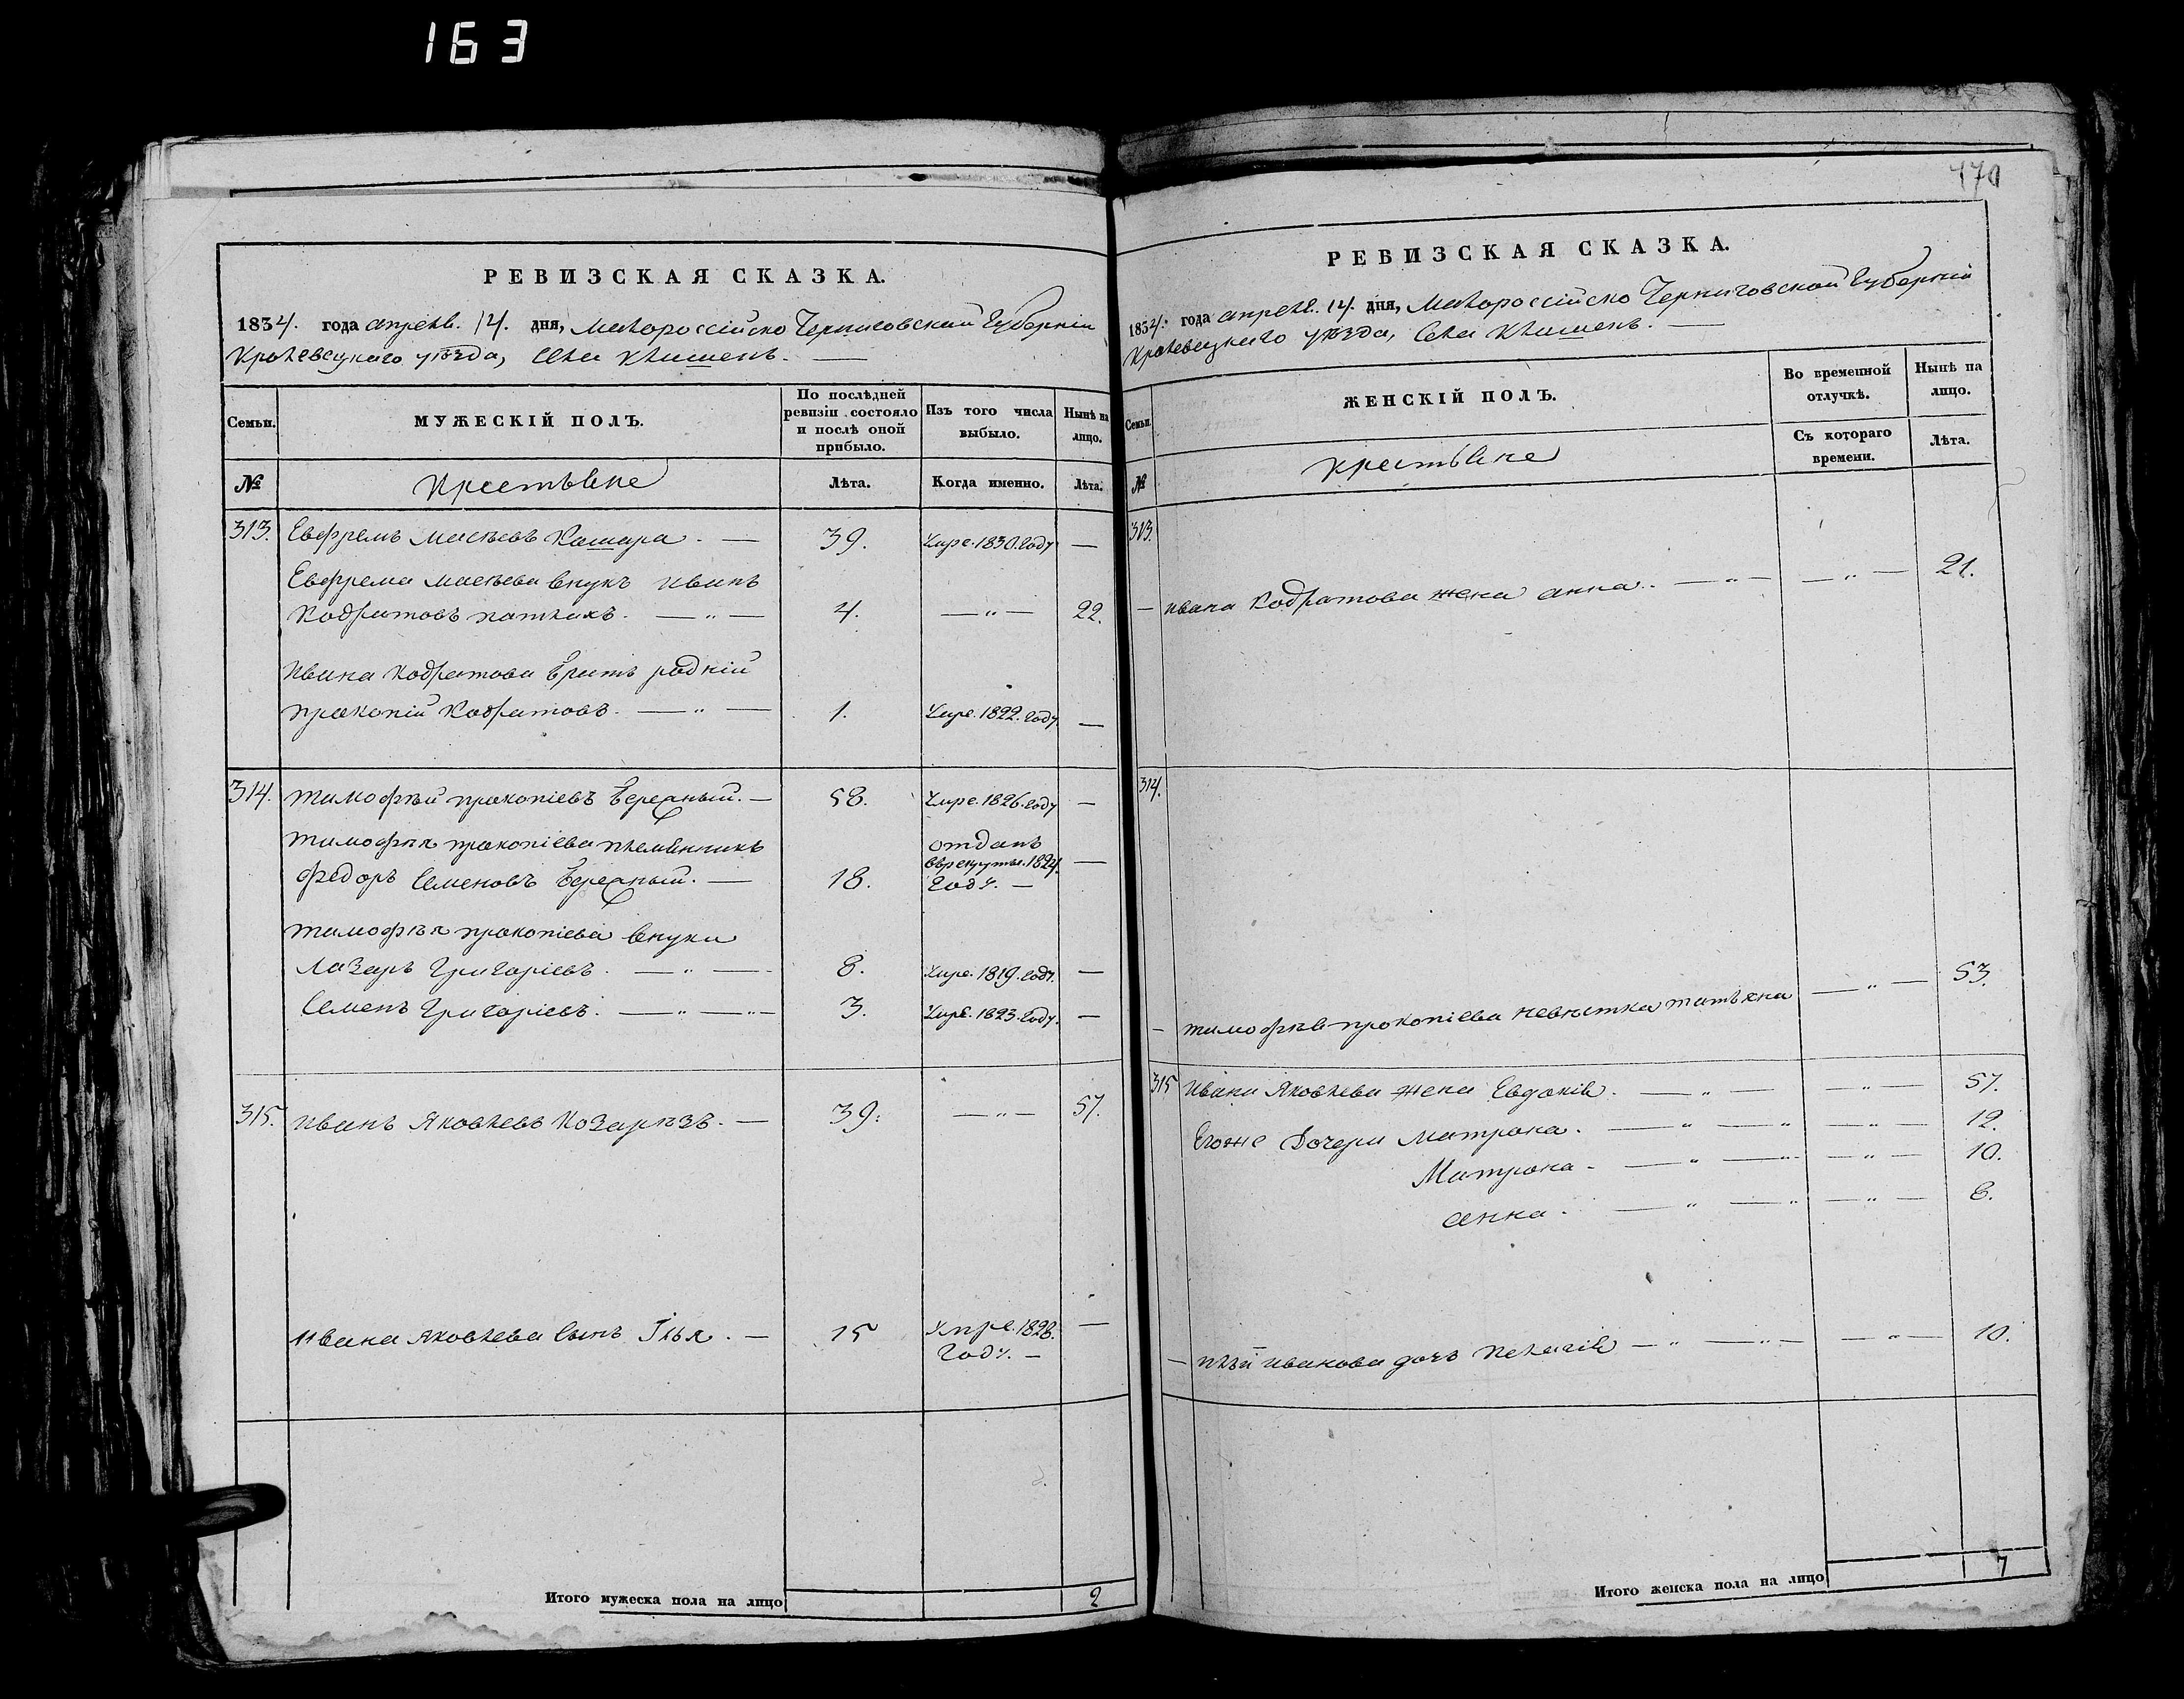 163
РЕВИЗСКАЯ СКАЗКА.
1834. года апреля. 14. дня, Малороссійско Черниговской Губерніи
Кролевецкаго уѣзда, Села Клишень.
Семьи.
МУЖЕСКІЙ ПОЛЪ.
По послѣдней ревизіи состояло и послѣ оной прибыло.
Изъ того числа выбыло.
Нынѣ на лицо.
№
Крестьяне
Лѣта.
Когда именно.
Лѣта.
313. Евфремъ Масѣевъ Кашара. — 39. Умре. 1830. Году —
Евфрема Масѣева внукъ иванъ
Кодратовъ — " — 4. — " — 22.
Ивана Кодратова братъ родній
прокопій Кодратовъ. — " — 1. Умре. 1822. Году. —
314. тимофѣй прокопіевъ Бережный. — 58. Умре. 1826. Году —
тимофѣя прокопіева племянникъ
федоръ Семеновъ Бережный. — 18. отданъ
врекруты. 1824.
Году. — —
тимофѣя прокопіева внуки
Лазарь Григоріевъ. — " — 8. Умре. 1819. Году. —
Семенъ Григоріевъ. — " — " — 3. Умре. 1823. Году. —
315. иванъ Яковлевъ Козарѣзъ. — 39. — " — 57.
Ивана Яковлева Сынъ Илья. — 15 Умре. 1828.
Году. — —
Итого мужеска пола на лицо 2
170
РЕВИЗСКАЯ СКАЗКА.
1834. года апреля. 14. дня, Малороссійско Черниговской Губерніи
Кролевецкаго уѣзда, Села Клишень. —
Семьи
ЖЕНСКІЙ ПОЛЪ.
Во временной отлучкѣ.
Нынѣ на лицо.
Съ котораго времени.
Лѣта.
№
крестьяне
313.
— ивана Кодратова жена анна. — " — — " — 21.
314.
— тимофѣя прокопіева невѣстка татьяна — " — 53.
315 Ивана Яковлева жена Евдокія. — " — — " — 57.
Егоже Дочери Матрона. — " — " — " — 12.
Матрона — " — " — " — 10.
анна. — " — " — " — 8.
— Ильи иванова дочь Пелагія — " — " — — " — 10.
Итого женска пола на лицо 7